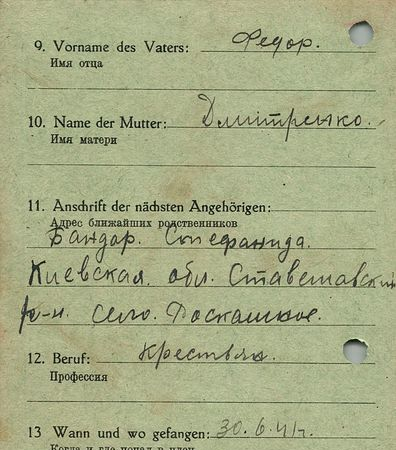 9. Vorname des Vaters: Федор.
Имя отца
10. Name der Mutter: Дмитренко.
Имя матери
11. Anschrift der nächsten Angehörigen:
Адрес ближайших родственников
Бандар. Стефанида.
Киевская. обл. Ставещавский
р-н. село.
12. Beruf: крестьян.
Профессия
13 Wann und wo gefangen: 30.6.41г.
Когда и где попал в плен